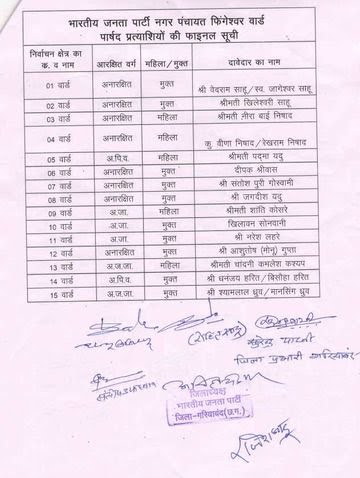 भारतीय जनता पार्टी नगर पंचायत फिंगेश्वर वार्ड
पार्षद प्रत्याशियों की फाइनल सूची
निर्वाचन क्षेत्र का क. व नाम आरक्षित वर्ग महिला/मुक्त दावेदार का नाम
01 वार्ड अनारक्षित मुक्त श्री वेदराम साहू/स्व. जागेश्वर साहू
02 वार्ड अनारक्षित मुक्त श्रीमती खिलेश्वरी साहू
03 वार्ड अनारक्षित महिला श्रीमती नीरा बाई निषाद
04 वार्ड अनारक्षित महिला कु वीणा निषाद/रेखराम निषाद
05 वार्ड अ.पि.व. महिला श्रीमती पदमा यदु
06 वार्ड अनारक्षित मुक्त दीपक श्रीवास
07 वार्ड अनारक्षित मुक्त श्री संतोष पुरी गोस्वामी
08 वार्ड अनारक्षित मुक्त श्री जगदीश यदु
09 वार्ड अ.जा. महिला श्रीमती शांति कोसरे
10 वार्ड अ.जा. मुक्त खिलावन सोनवानी
11 वार्ड अ.जा. मुक्त श्री नरेश लहरे
12 वार्ड अनारक्षित मुक्त श्री आशुतोष (मोनू) गुप्ता
13 वार्ड अ.ज.जा. महिला श्रीमती चांदनी कमलेश कश्यप
14 वार्ड अ.पि.व. मुक्त श्री धनंजय हरित/बिसोहा हरित
15 वार्ड अ.ज.जा. मुक्त श्री श्यामलाल ध्रुव/मानसिंग ध्रुव
जिला प्रभारी गरियाबंद
जिलाध्यक्ष
भारतीय जनता पार्टी
जिला-गरियाबंद (छ.ग.)